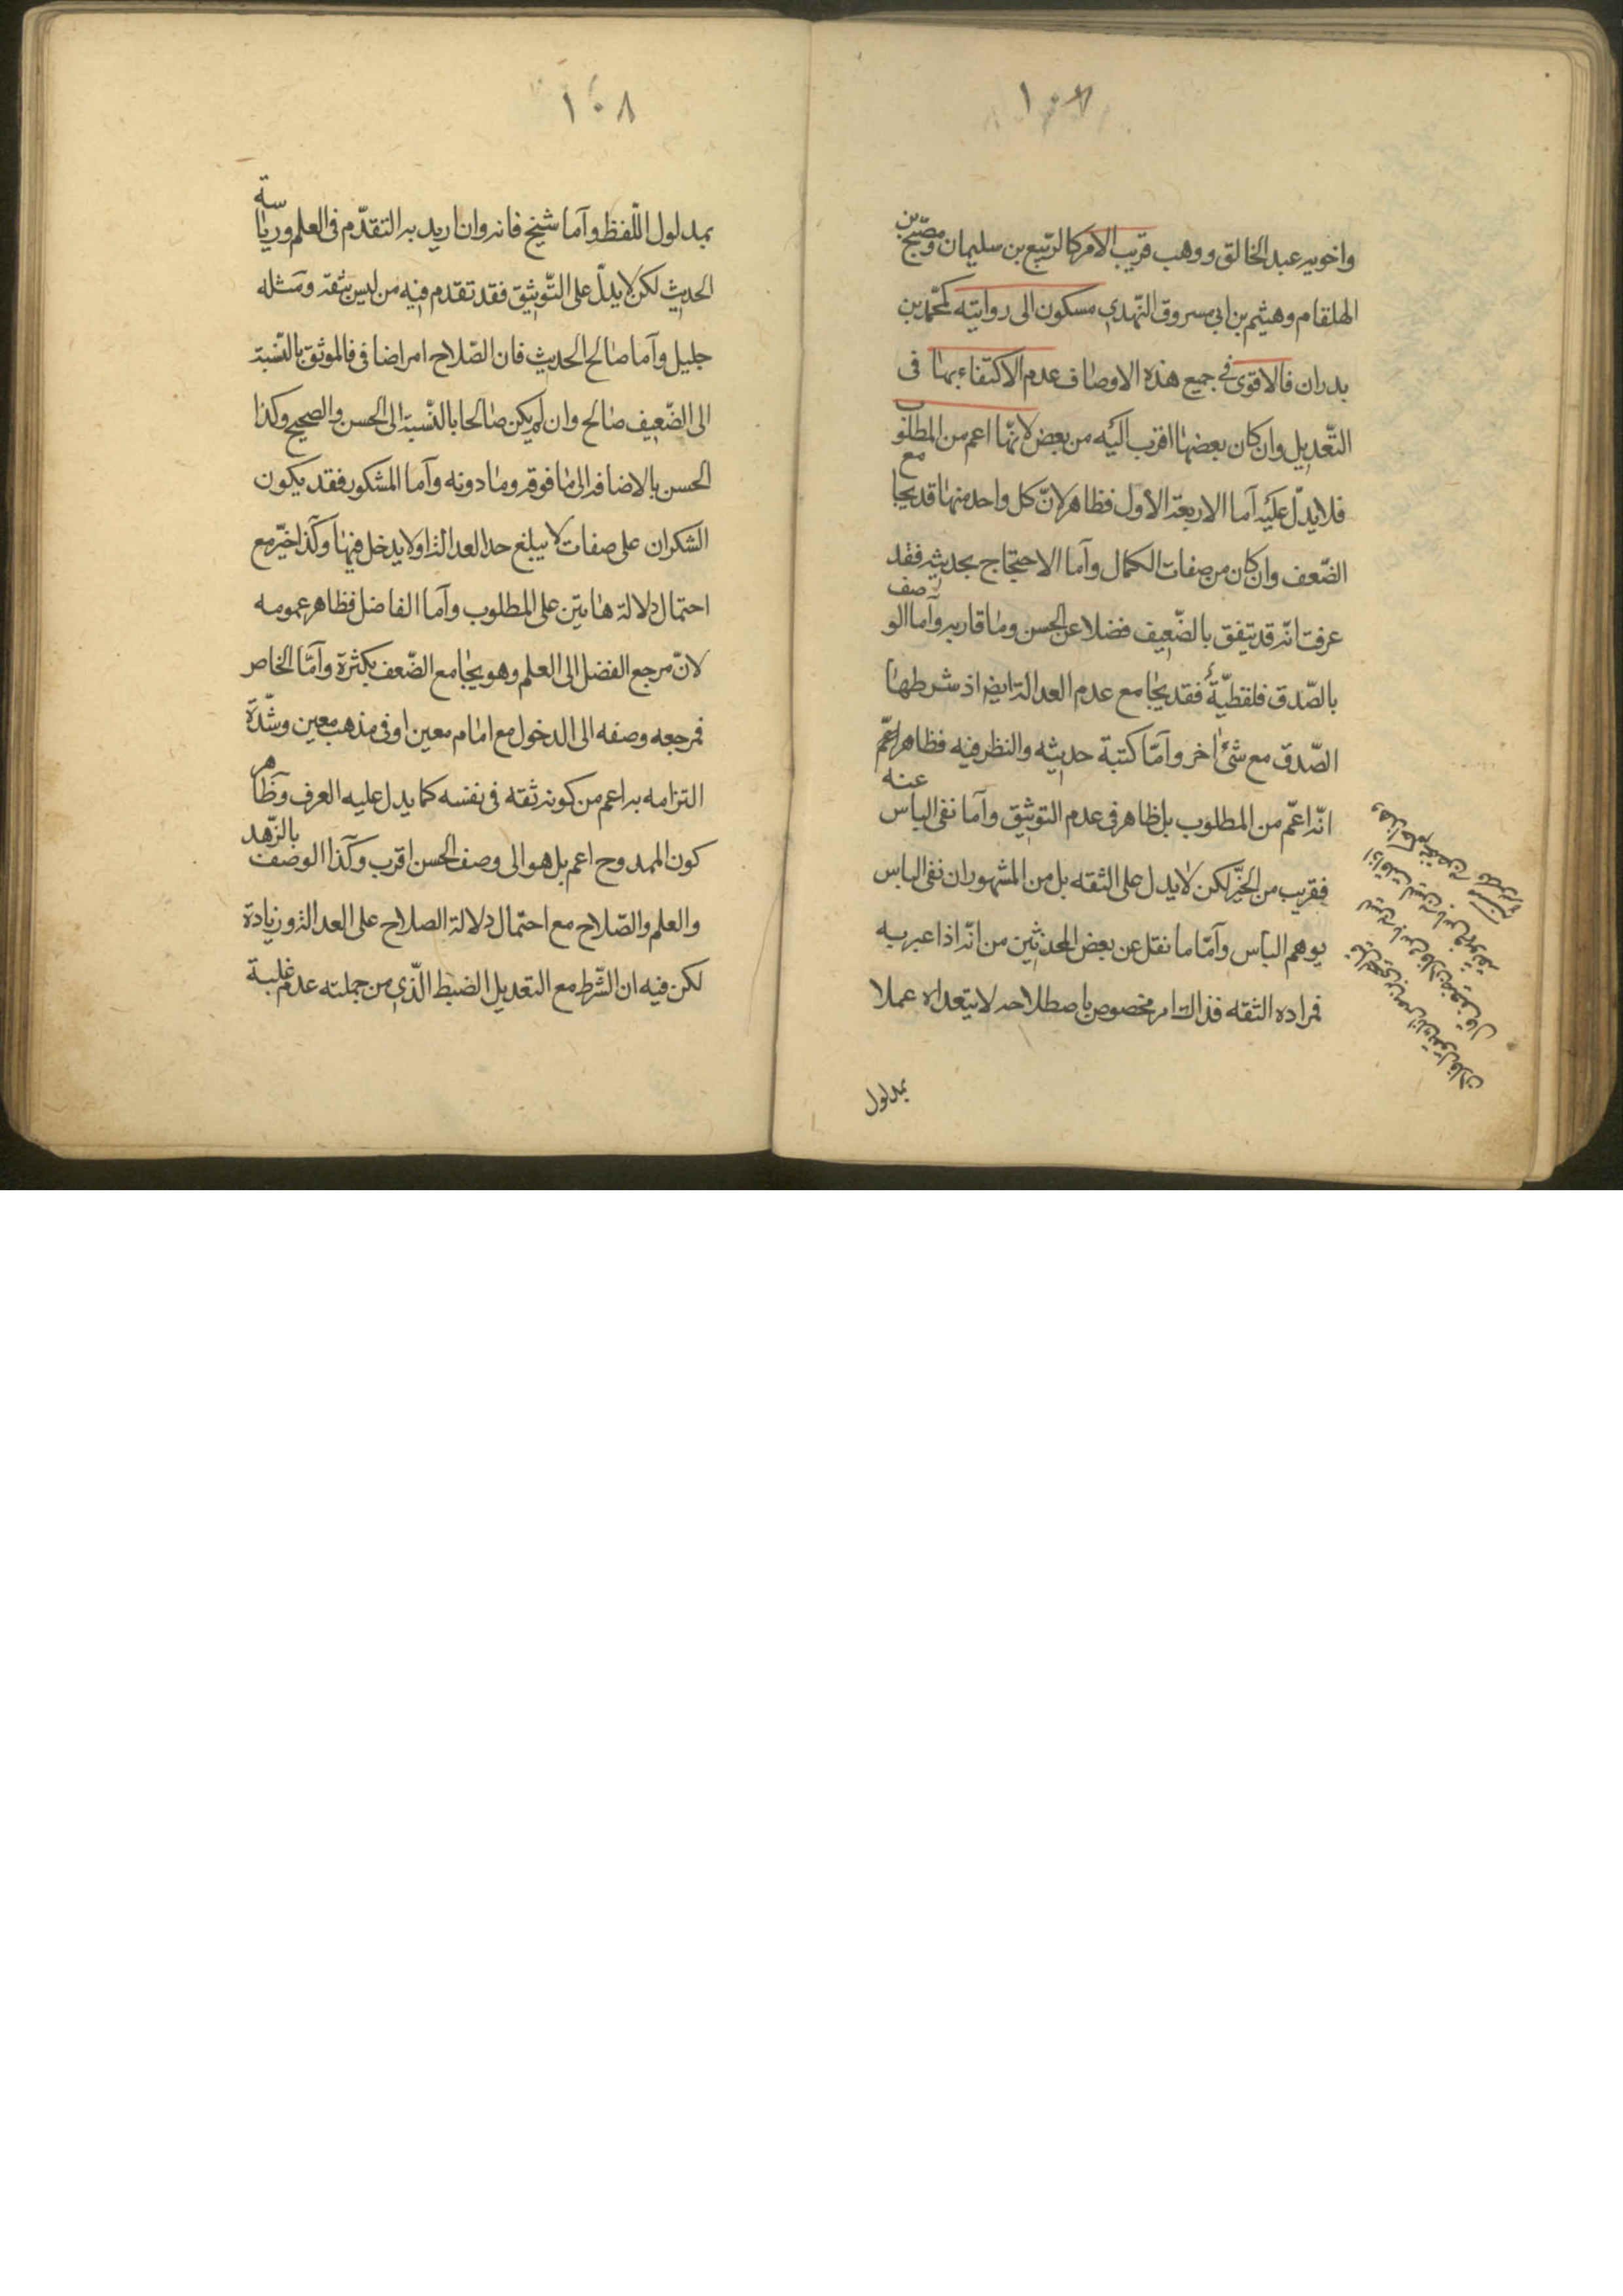 ١٠٧
واخويه عبد الخالق ووهب قريب الامر كالربيع بن سليمان ومصبح بن
الهلقام وهيثم بن ابي مسروق النهدي مسكون الى روايته كمحمد بن
بدران فالاقوى في جميع هذه الاوصاف عدم الاكتفاء بها فى
التّعديل وان كان بعضها اقرب اليه من بعض لانهّا اعم من المطلوب
فلا يدلّ عليه اما الاربعة الاول فظاهر لانّ كل واحد منها قد يجامع
الضّعف وان كان من صفات الكمال وآما الاحتجاج بحديثه فقد
عرفت انّه قد يتفق بالضّعيف فضلا عن الحسن وما قاربه وآما الوصف
بالصّدق فلفظيّة فقد يجامع عدم العدالة ايضا اذ شرطها
الصّدق مع شئ اخر وآمّا كتبة حديثه والنظر فيه فظاهر اعمّ
انّه اعمّ من المطلوب بل ظاهر فى عدم التوثيق وآما نفى الباس عنه
فقريب من الخيّر لكن لا يدل على الثقه بل من المشهور ان نفى الباس
يوهم الباس وآمّا ما نقل عن بعض المحدثين من انّه اذا عبر به
فمراده الثقه فذاك امر مخصوص باصطلاحه لا يتعداه عملا
بمدلول
١٠٨
بمدلول اللّفظ وآما شيخ فانه وان اريد به التقدّم فى العلم ورياسة
الحديث لكن لا يدلّ على التّوثيق فقد تقدم فيه من ليس بثقة ومثله
جليل وآما صالح الحديث فان الصّلاح امر اضافى فالموثق بالنّسبة
الى الضّعيف صالح وان لم يكن صالحا بالنّسبة الى الحسن والصحيح وكذا
الحسن بالاضافة الى ما فوقه وما دونه وآما المشكور فقد يكون
الشكران على صفات لا يبلغ حد العدالة ولا يدخل فيها وكذا خيّر مع
احتمال دلالة هاتين على المطلوب وآما الفاضل فظاهر عمومه
لانّ مرجع الفضل الى العلم وهو يجامع الضّعف بكثرة وآمّا الخاص
فمرجعه وصفه الى الدخول مع امام معين او فى مذهب معين وشدّة
التزامه به اعم من كونه ثقه فى نفسه كما يدل عليه العرف وظاهر
كون الممدوح اعم بل هو الى وصف الحسن اقرب وكذا الوصف بالزّهد
والعلم والصّلاح مع احتمال دلالة الصلاح على العدالة وزيادة
لكن فيه ان الشّرط مع التعديل الضبط الّذي من جملته عدم غلبة